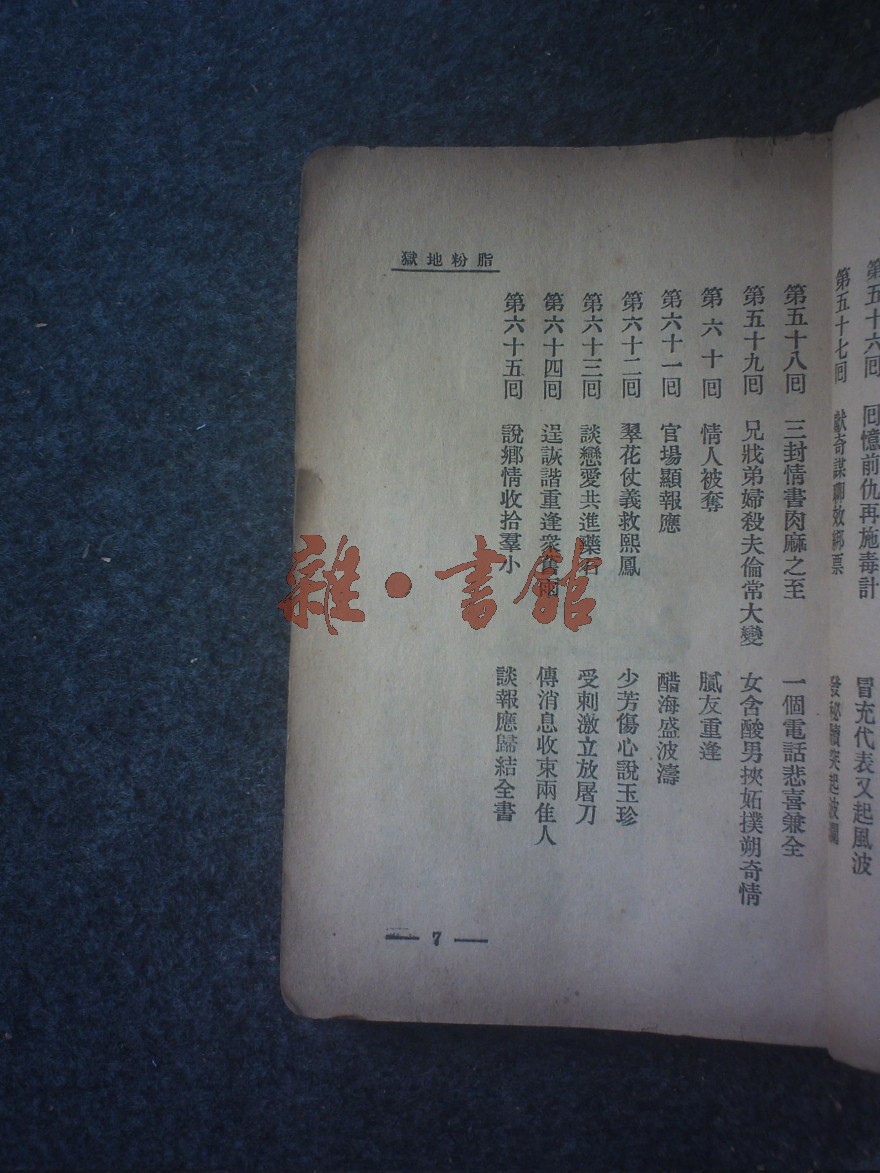 脂粉地獄
第五十六回 回憶前仇再施毒計 冒充代表又起風波
第五十七回 獻奇謀 綁票 發秘 突起波瀾
第五十八回 三封情書肉麻之至 一個電話悲喜兼全
第五十九回 兄戕弟婦殺夫倫常大變 女含酸男挾妬撲朔奇情
第六十回 情人被奪 膩友重逢
第六十一回 官場顯報應 醋海盛波濤
第六十二回 翠花仗義救熙鳳 少芳傷心說玉珍
第六十三回 談戀愛共進藥石 受刺激立放屠刀
第六十四回 逞詼諧重逢衆舊雨 傳消息收束兩佳人
第六十五回 說鄉情收拾羣小 談報應歸結全書
7
雜·書館